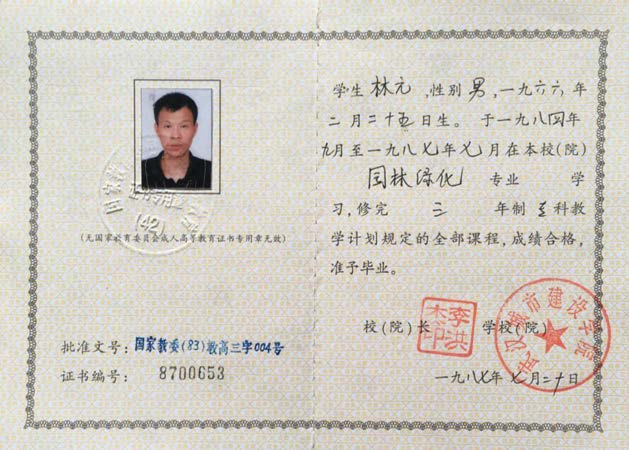 学生林元,性别男,一九六六年
二月二十五日生。于一九八四年
九月至一九八七年七月在本校(院)
园林绿化 专业 学
习,修完 三 年制 专科教
学计划规定的全部课程,成绩合格,
准予毕业。
校(院)长
学校(院)
武汉城市建设学院
一九八七年七月二十日
(42)
(无国家教育委员会成人高等教育证书专用章无效)
批准文号:国家教委(83)教高三字004号
证书编号: 8700653